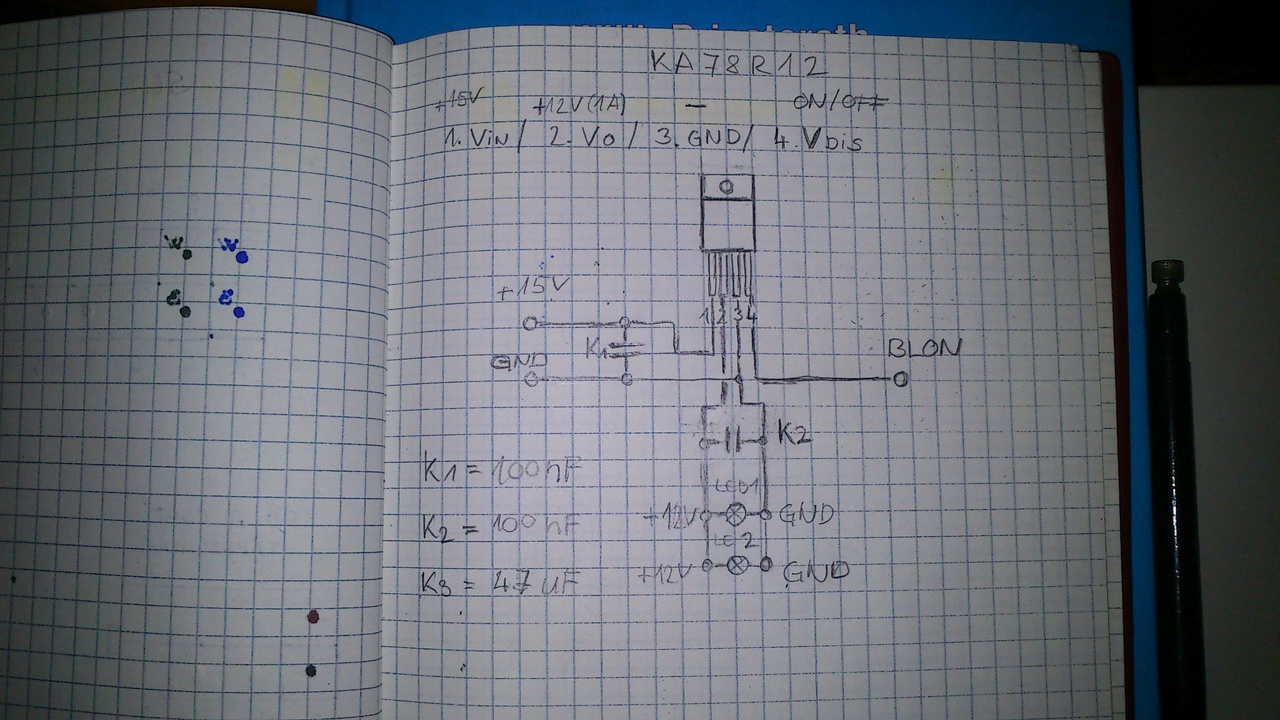 KA78R12
+15V +12V(1A) — ON/OFF
1. Vin/ 2. Vo/ 3. GND/ 4. Vbis
+15V
1 2 3 4
K1
GND
BLON
K2
K1 = 100nF
LED1
+12V GND
K2 = 100nF
2
K3 = 47uF
+12V GND